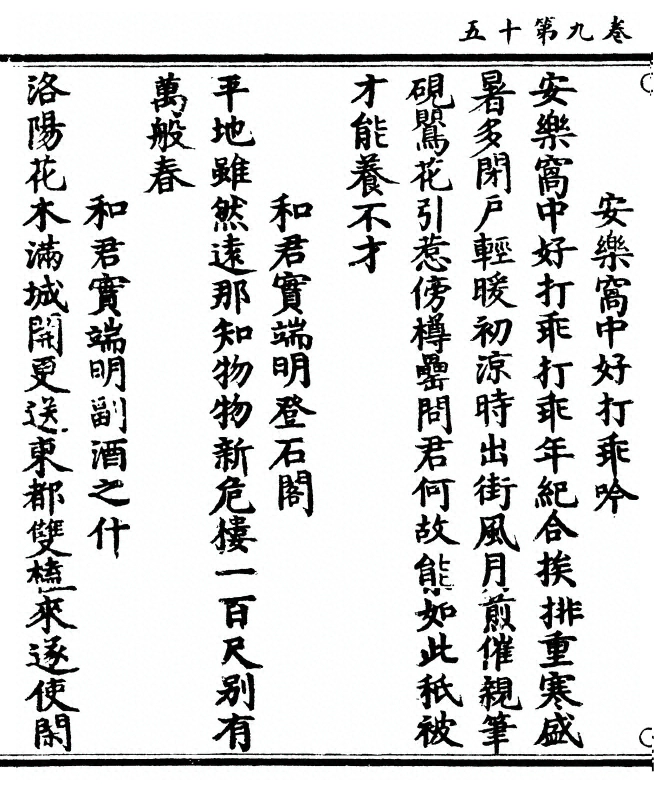 五十第九卷
安樂窩中好打乖吟
安樂窩中好打乖打乖年紀合挨排重寒盛
暑多閉戶輕暖初涼時出街風月煎催親筆
硯鸎花引惹傍樽罍問君何故能如此秖被
才能養不才
和君實端明登石閣
平地雖然遠那知物物新危樓一百尺别有
萬般春
和君實端明副酒之什
洛陽花木滿城開更送東都雙榼來遂使閑